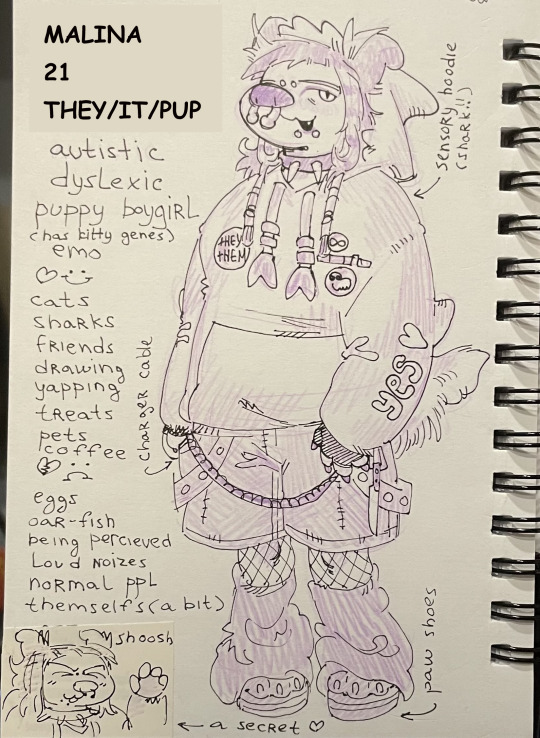 MALINA
21
THEY/IT/PUP
autistic
dyslexic
puppy boygirl
(has kitty genes)
emo
♡ :)
cats
sharks
friends
drawing
yapping
treats
pets
coffee
:(
eggs
oar-fish
being percieved
Loud noizes
normal ppl
themselfs (a bit)
shoosh
← a secret ♡
sensory hoodie
(shark!!)
THEY
THEM
yes ♡
charger cable
paw shoes